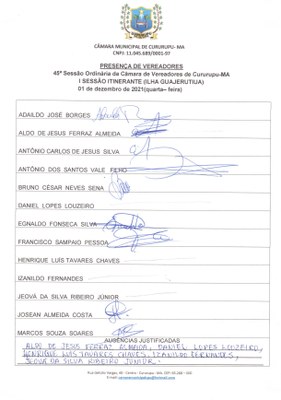 CÂMARA MUNICIPAL DE CURURUPU- MA
CNPJ: 11.045.689/0001-07
PRESENÇA DE VEREADORES
45ª Sessão Ordinária da Câmara de Vereadores de Cururupu-MA
I SESSÃO ITINERANTE (ILHA GUAJERUTIUA)
01 de dezembro de 2021(quarta– feira)
ADAILDO JOSÉ BORGES
ALDO DE JESUS FERRAZ ALMEIDA
ANTÔNIO CARLOS DE JESUS SILVA
ANTÔNIO DOS SANTOS VALE FILHO
BRUNO CÉSAR NEVES SENA
DANIEL LOPES LOUZEIRO
EGNALDO FONSECA SILVA
FRANCISCO SAMPAIO PESSOA
HENRIQUE LUÍS TAVARES CHAVES
IZANILDO FERNANDES
JEOVÁ DA SILVA RIBEIRO JÚNIOR
JOSEAN ALMEIDA COSTA
MARCOS SOUZA SOARES
AUSÊNCIAS JUSTIFICADAS
ALDO DE JESUS FERRAZ ALMEIDA, DANIEL LOPES LOUZEIRO,
HENRIQUE LUIS TAVARES CHAVES, IZANILDO FERNANDES,
JEOVÁ DA SILVA RIBEIRO JUNIOR.